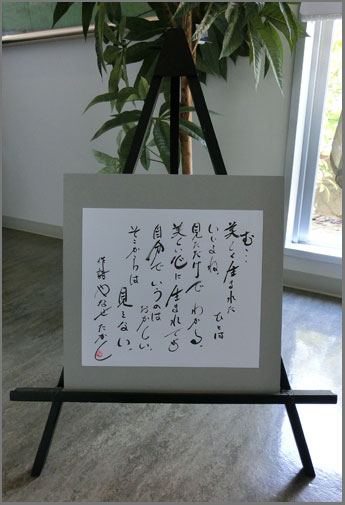 む…
美しく生まれた
ひとは
いいよね、
見ただけで わかる。
美しい心に生まれても
自分で いうのは
おかしい。
そとからは
見えない。
作詩 やなせたかし